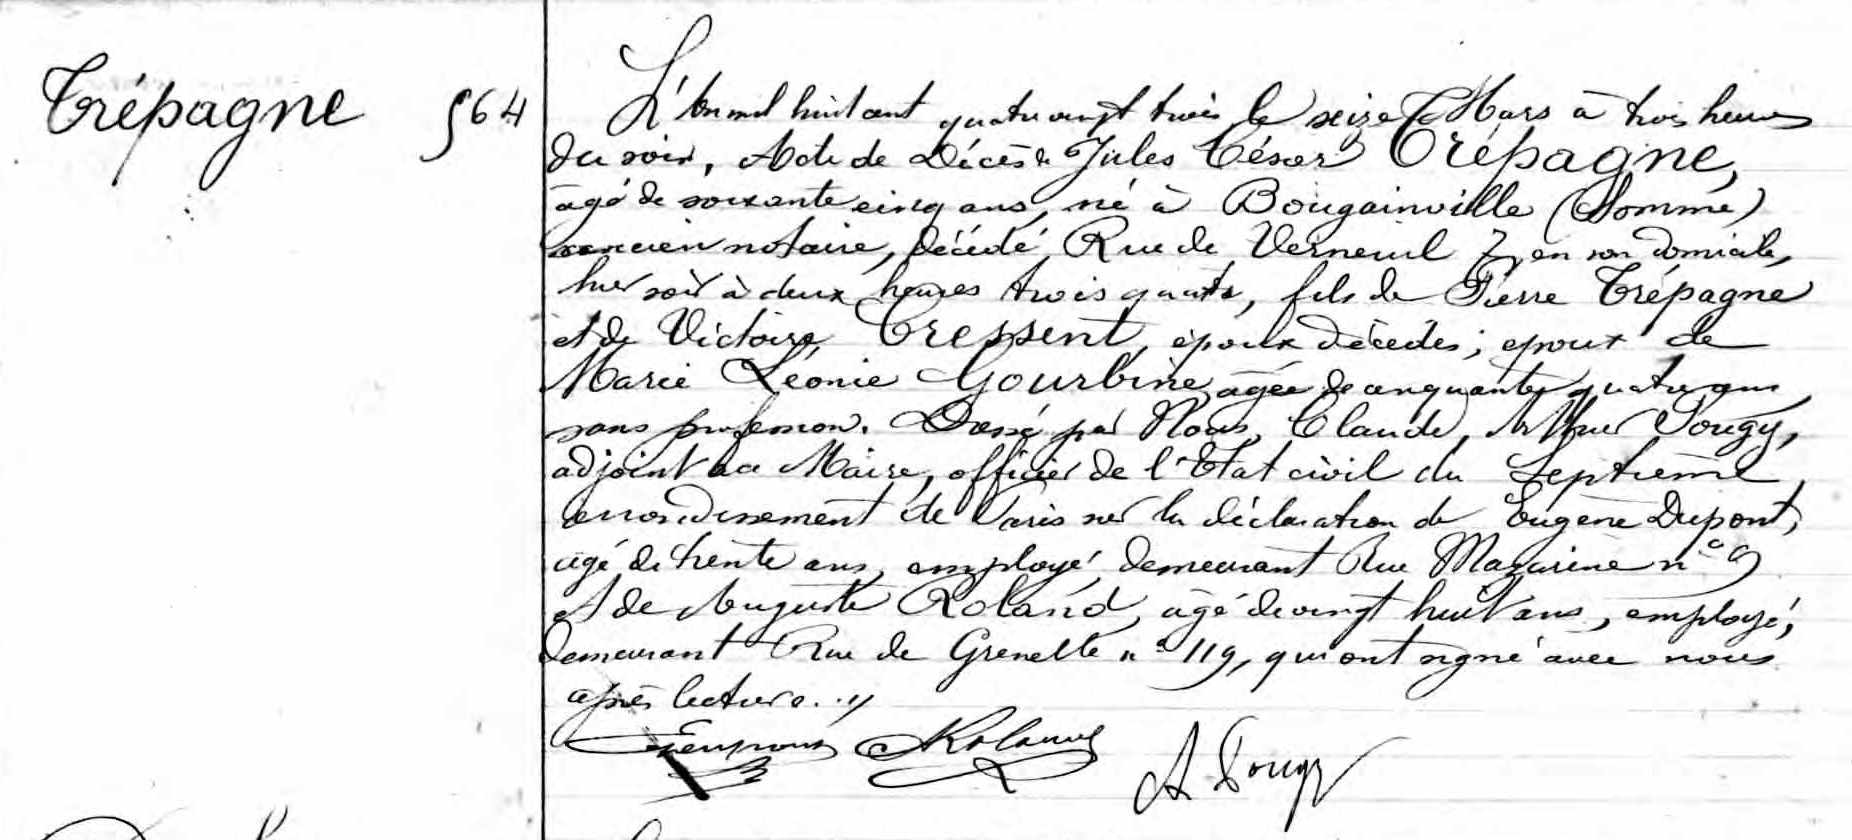 Trépagne 564
L'an mil huit cent quatre vingt trois le seize Mars à trois heures
du soir, Acte de Décès de Jules César Trépagne,
âgé de soixante cinq ans, né à Bougainville (Somme)
ancien notaire, décédé, Rue de Verneuil 7, en son domicile,
hier soir à deux heures trois quarts, fils de Pierre Trépagne
et de Victoire Cressent, époux décédés; époux de
Marie Léonie Gourbine âgée de cinquante quatre ans
sans profession. Dressé par Nous, Claude, Arthur Pougy,
adjoint au Maire, officier de l'Etat civil du Septième
arrondissement de Paris sur la déclaration de Eugène Dupont,
âgé de trente ans, employé, demeurant Rue Mazarine n° 9
Et de Auguste Roland, âgé de vingt huit ans, employé,
demeurant Rue de Grenelle n° 119, qui ont signé avec nous
après lecture. //
ARoland A Pougy